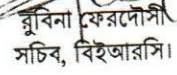 রুবিনা ফেরদৌসী
সচিব, বিইআরসি।